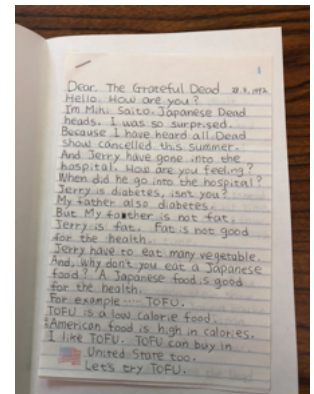 1
Dear. The Grateful Dead
Hello. How are you?
I'm Miki Saito. Japanese Dead
heads. I was so surprised.
Because I have heard all Dead
show cancelled this summer.
And Jerry have gone into the
hospital. How are you feeling?
When did he go into the hospital?
Jerry is diabetes, isn't you?
My father also diabetes.
But My father is not fat.
Jerry is fat. Fat is not good
for the health.
Jerry have to eat many vegetable.
And, why don't you eat a Japanese
food? A Japanese food is good
for the health.
For example ---- TOFU.
TOFU is a low calorie food.
American food is high in calories.
I like TOFU. TOFU can buy in
United State too.
Let's try TOFU.